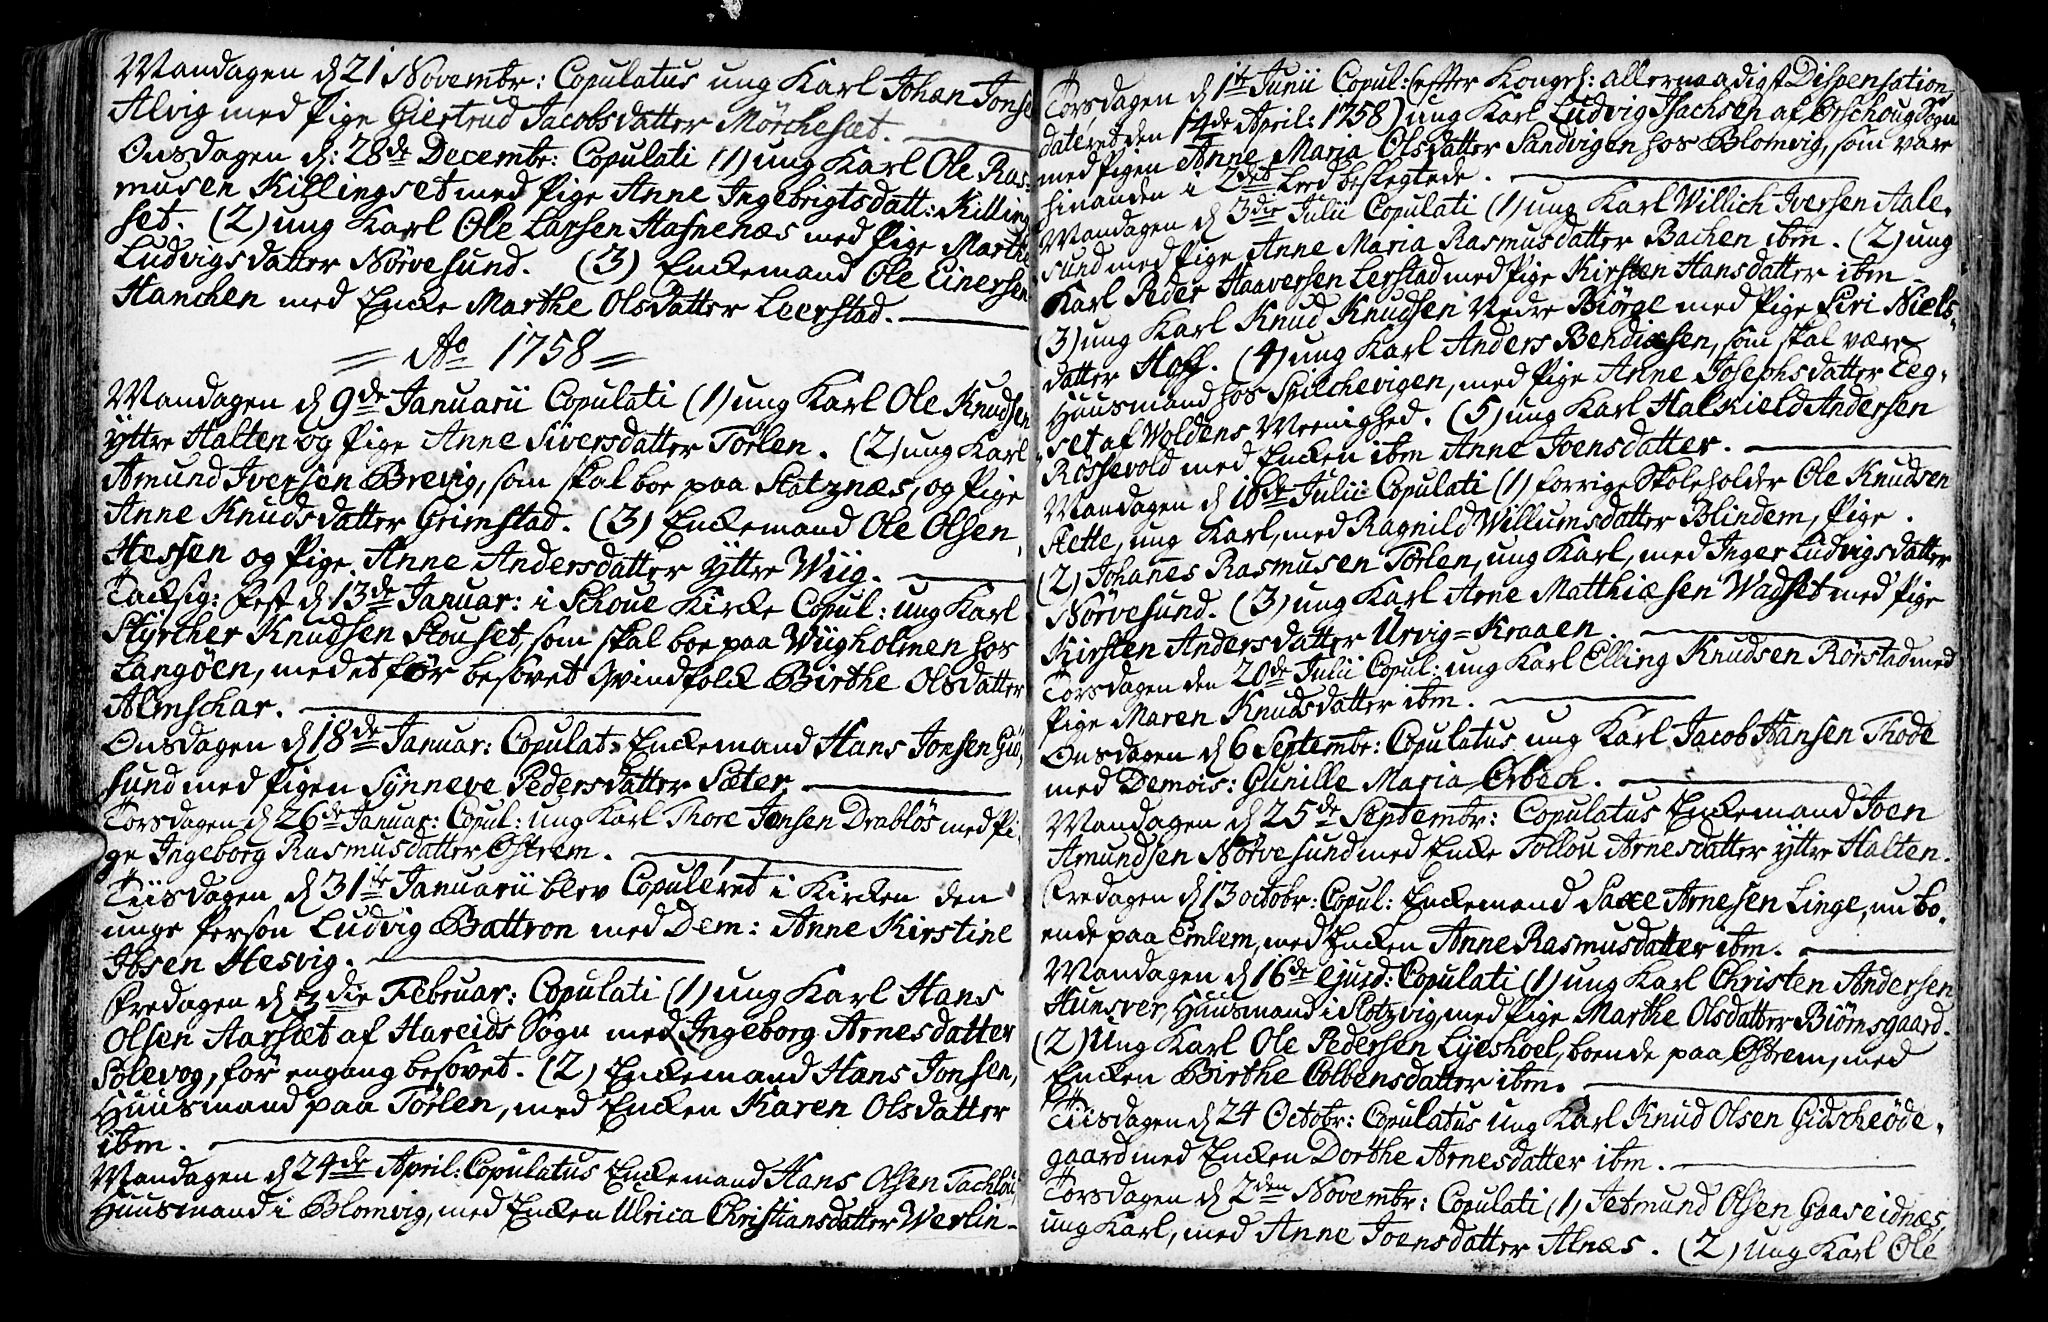 Mandagen d. 21 Novembr: Copulatus ung Karl Johan Jonse
Alvig med Pige Giertrud Jacobsdatter Mørchesæt.
Onsdagen d: 28de Decembr: Copulati (1) ung Karl Ole Ras-
musen Killingset med Pige Anne Ingebrigtsdatt: Killing
set. (2) ung Karl Ole Larsen Hafnenæs med Pige Marthe
Ludvigsdatter Nørvesund. (3) Enckemand Ole Einersen
Hanchen med Encke Marthe Olsdatter Leerstad.
= Ao 1758 =
Mandagen d 9de Januarii Copulati (1) ung Karl Ole Knudsen
Yttre Halten og Pige Anne Siversdatter Tørlen. (2) ung Karl
Amund Iversen Brevig, som skal boe paa Slotznæs, og Pige
Anne Knudsdatter Grimstad. (3) Enckemand Ole Olsen
Hessen og Pige Anne Andersdatter Yttre Wiig.
Tacksig: Fest d 13de Januar: i Schoue Kircke Copul: ung Karl
Styrcher Knudsen Stouset, som skal boe paa Wiigholmen hos
Langøen, med et før besovet Qvindfolck Birthe Olsdatter
Almschar.
Onsdagen d 18de Januar: Copulat: Enckemand Hans Jonsen Giø
sund med Pigen Synneve Pedersdatter Sæter.
Torsdagen d 26de Januar: Copul: ung Karl Thore Jensen Drabløs med Pi-
ge Ingeborg Rasmusdatter Østrem.
Tiisdagen d 31te Januarii blev Copuleret i Kircken den
unge Person Ludvig Battron med Dem: Anne Kirstine
Ibsen Hesvig.
Fredagen d 3die Februar: Copulati (1) ung Karl Hans
Olsen Aarsæt af Hareids Sogn med Ingeborg Arnesdatter
Solevog, før engang besovet. (2) Enckemand Hans Jonsen,
Huusmand paa Tørlen, med Encken Karen Olsdatter
ibm.
Mandagen d 24de April: Copulatus Enckemand Hans Olsen Tachlou,
Huusmand i Blomvig, med Encken Ulrica Christiansdatter Werlin-
Torsdagen d 1te Junii Copul: (efter Kongel: allernaadigst Dispensation,
dateret den 14de April: 1758) ung Karl Ludvig Isachsen af Ørschoug Sogn
med Pigen Anne Maria Olsdatter Sandvigen hos Blomvig, som vare
hinanden i 2det Leed beslegtede.
Mandagen d 3die Julii Copulati (1) ung Karl Willich Iversen Aale-
sund med Pige Anne Maria Rasmusdatter Bachen ibm. (2) ung
Karl Peder Haaversen Lerstad med Pige Kirsten Hansdatter ibm
(3) ung Karl Knud Knudsen Nedre Biørge med Pige Siri Niels-
datter Hoff. (4) ung Karl Anders Bendixsen, som skal være
Huusmand hos Spilchevigen, med Pige Anne Josephsdatter Eeg-
set af Woldens Meenighed. (5) ung Karl Halkield Andersen
Røssevold med Encken ibm Anne Joensdatter.
Mandagen d 16de Julii Copulati (1) forrige Skoleholder Ole Knudsen
Slette, ung Karl, med Ragnild Willumsdatter Blindem, Pige.
(2) Johanes Rasmusen Tørlen, ung Karl, med Inger Ludvigsdatter
Nørvesund. (3) ung Karl Arne Matthiæsen Wadset med Pige
Kirsten Andersdatter Urvig=Kraaen.
Torsdagen den 20de Julii Copul: ung Karl Elling Knudsen Rørstad med
Pige Maren Knudsdatter ibm.
Onsdagen d 6 Septembr: Copulatus ung Karl Jacob Hansen Thode
med Demois: Gunille Maria Orbech.
Mandagen d 25de Septembr: Copulatus Enckemand Joen
Amundsen Nørvesund med Encke Tollou Arnesdatter Yttre Halten.
Fredagen d 13 Octobr: Copul: Enckemand Saxe Arnesen Linge, nu bo-
ende paa Emlem, med Encken Anne Rasmusdatter ibm.
Mandagen d 16de ejusd: Copulati (1) ung Karl Christen Andersen
Hunsver, Huusmand i Slotzvig, med Pige Marthe Olsdatter Biørnsgaard.
(2) Ung Karl Ole Pedersen Lyeshoel, boende paa Østrem, med
Encken Birthe Colbensdatter ibm.
Tiisdagen d 24 Octobr: Copulatus ung Karl Knud Olsen Gidscheøde-
gaard med Encken Dorthe Arnesdatter ibm.
Torsdagen d 2den Novembr: Copulati (1) Jetmund Olsen Gaaseidnæs,
ung Karl, med Anne Joensdatter Alnæs. (2) Ung Karl Ole